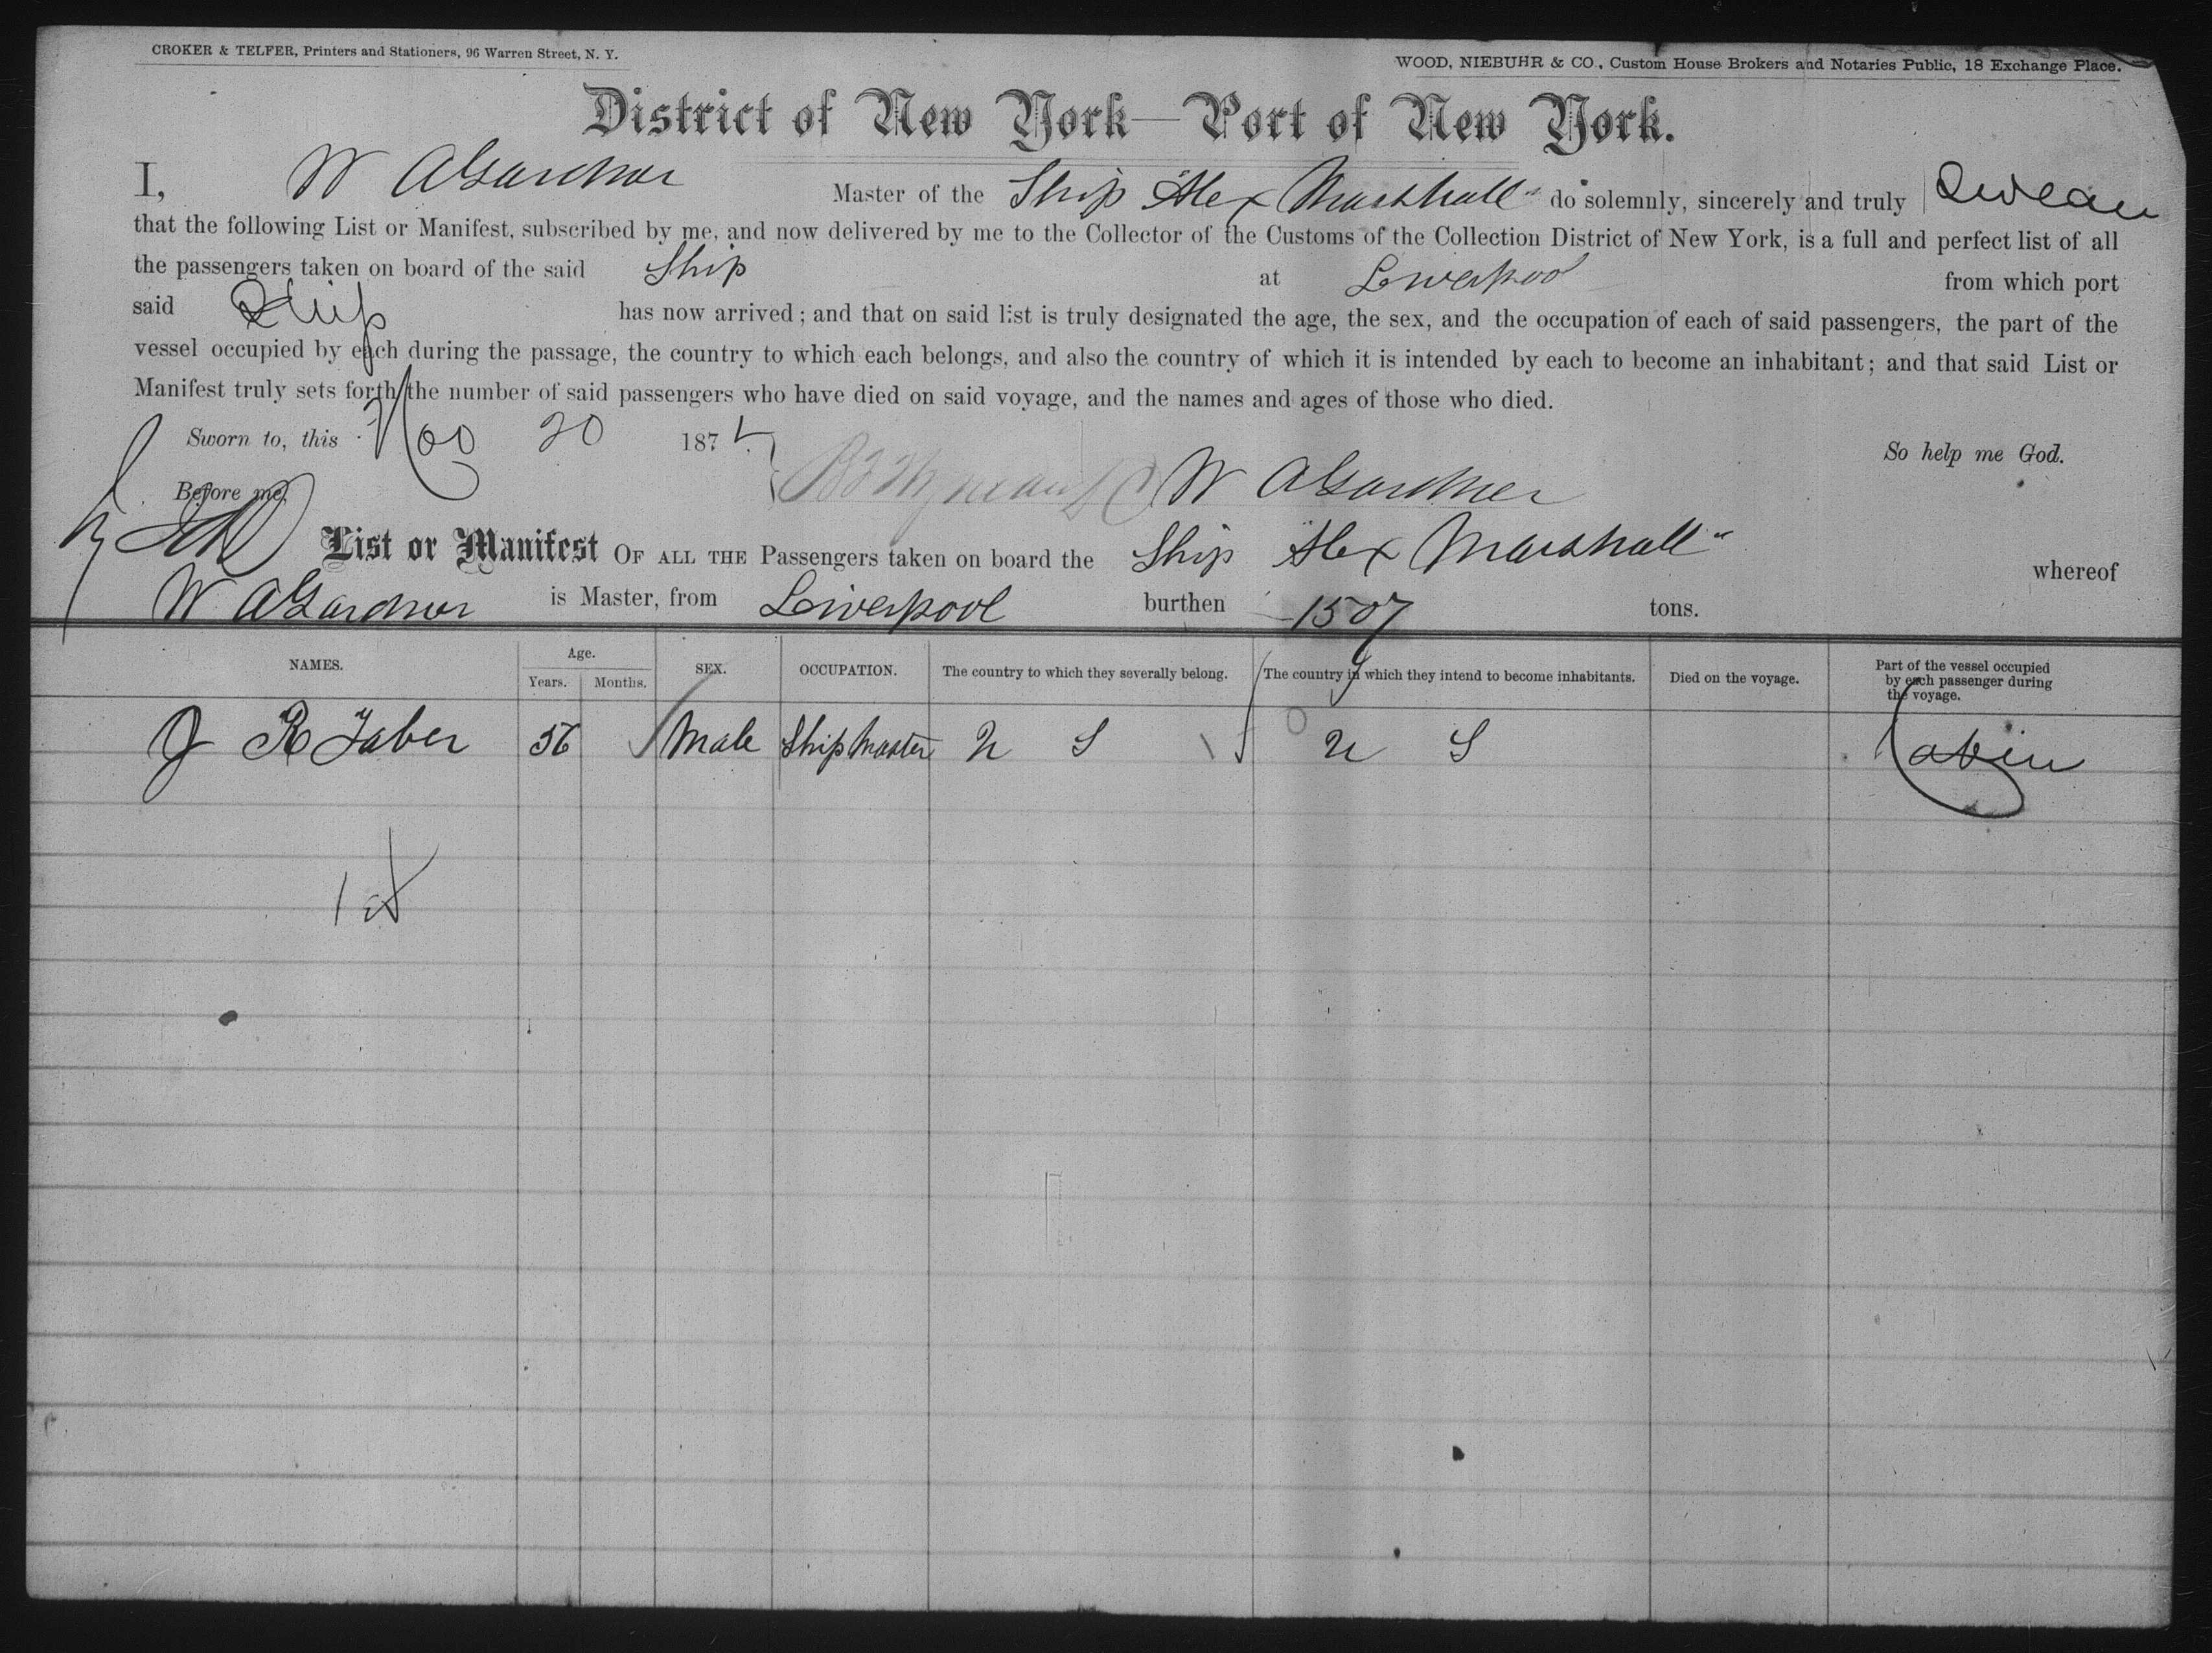 CROKER & TELFER, Printers and Stationers, 96 Warren Street, N. Y.
WOOD, NIEBUHR & CO., Custom House Brokers and Notaries Public, 18 Exchange Place.
District of New York—Port of New York.
I, W A Gardner Master of the Ship "Alex Marshall" do solemnly, sincerely and truly Swear
that the following List or Manifest, subscribed by me, and now delivered by me to the Collector of the Customs of the Collection District of New York, is a full and perfect list of all
the passengers taken on board of the said Ship at Liverpool from which port
said Ship has now arrived; and that on said list is truly designated the age, the sex, and the occupation of each of said passengers, the part of the
vessel occupied by each during the passage, the country to which each belongs, and also the country of which it is intended by each to become an inhabitant; and that said List or
Manifest truly sets forth the number of said passengers who have died on said voyage, and the names and ages of those who died.
Sworn to, this 20 187 So help me God.
Before me, W A Gardner
List or Manifest OF ALL THE Passengers taken on board the Ship "Alex Marshall" whereof
W A Gardner is Master, from Liverpool burthen 1507 tons.
NAMES. Age. Years. Months. SEX. OCCUPATION. The country to which they severally belong. The country in which they intend to become inhabitants. Died on the voyage. Part of the vessel occupied by each passenger during the voyage.
J R Taber 56 Male Ship Master U S U S Cabin